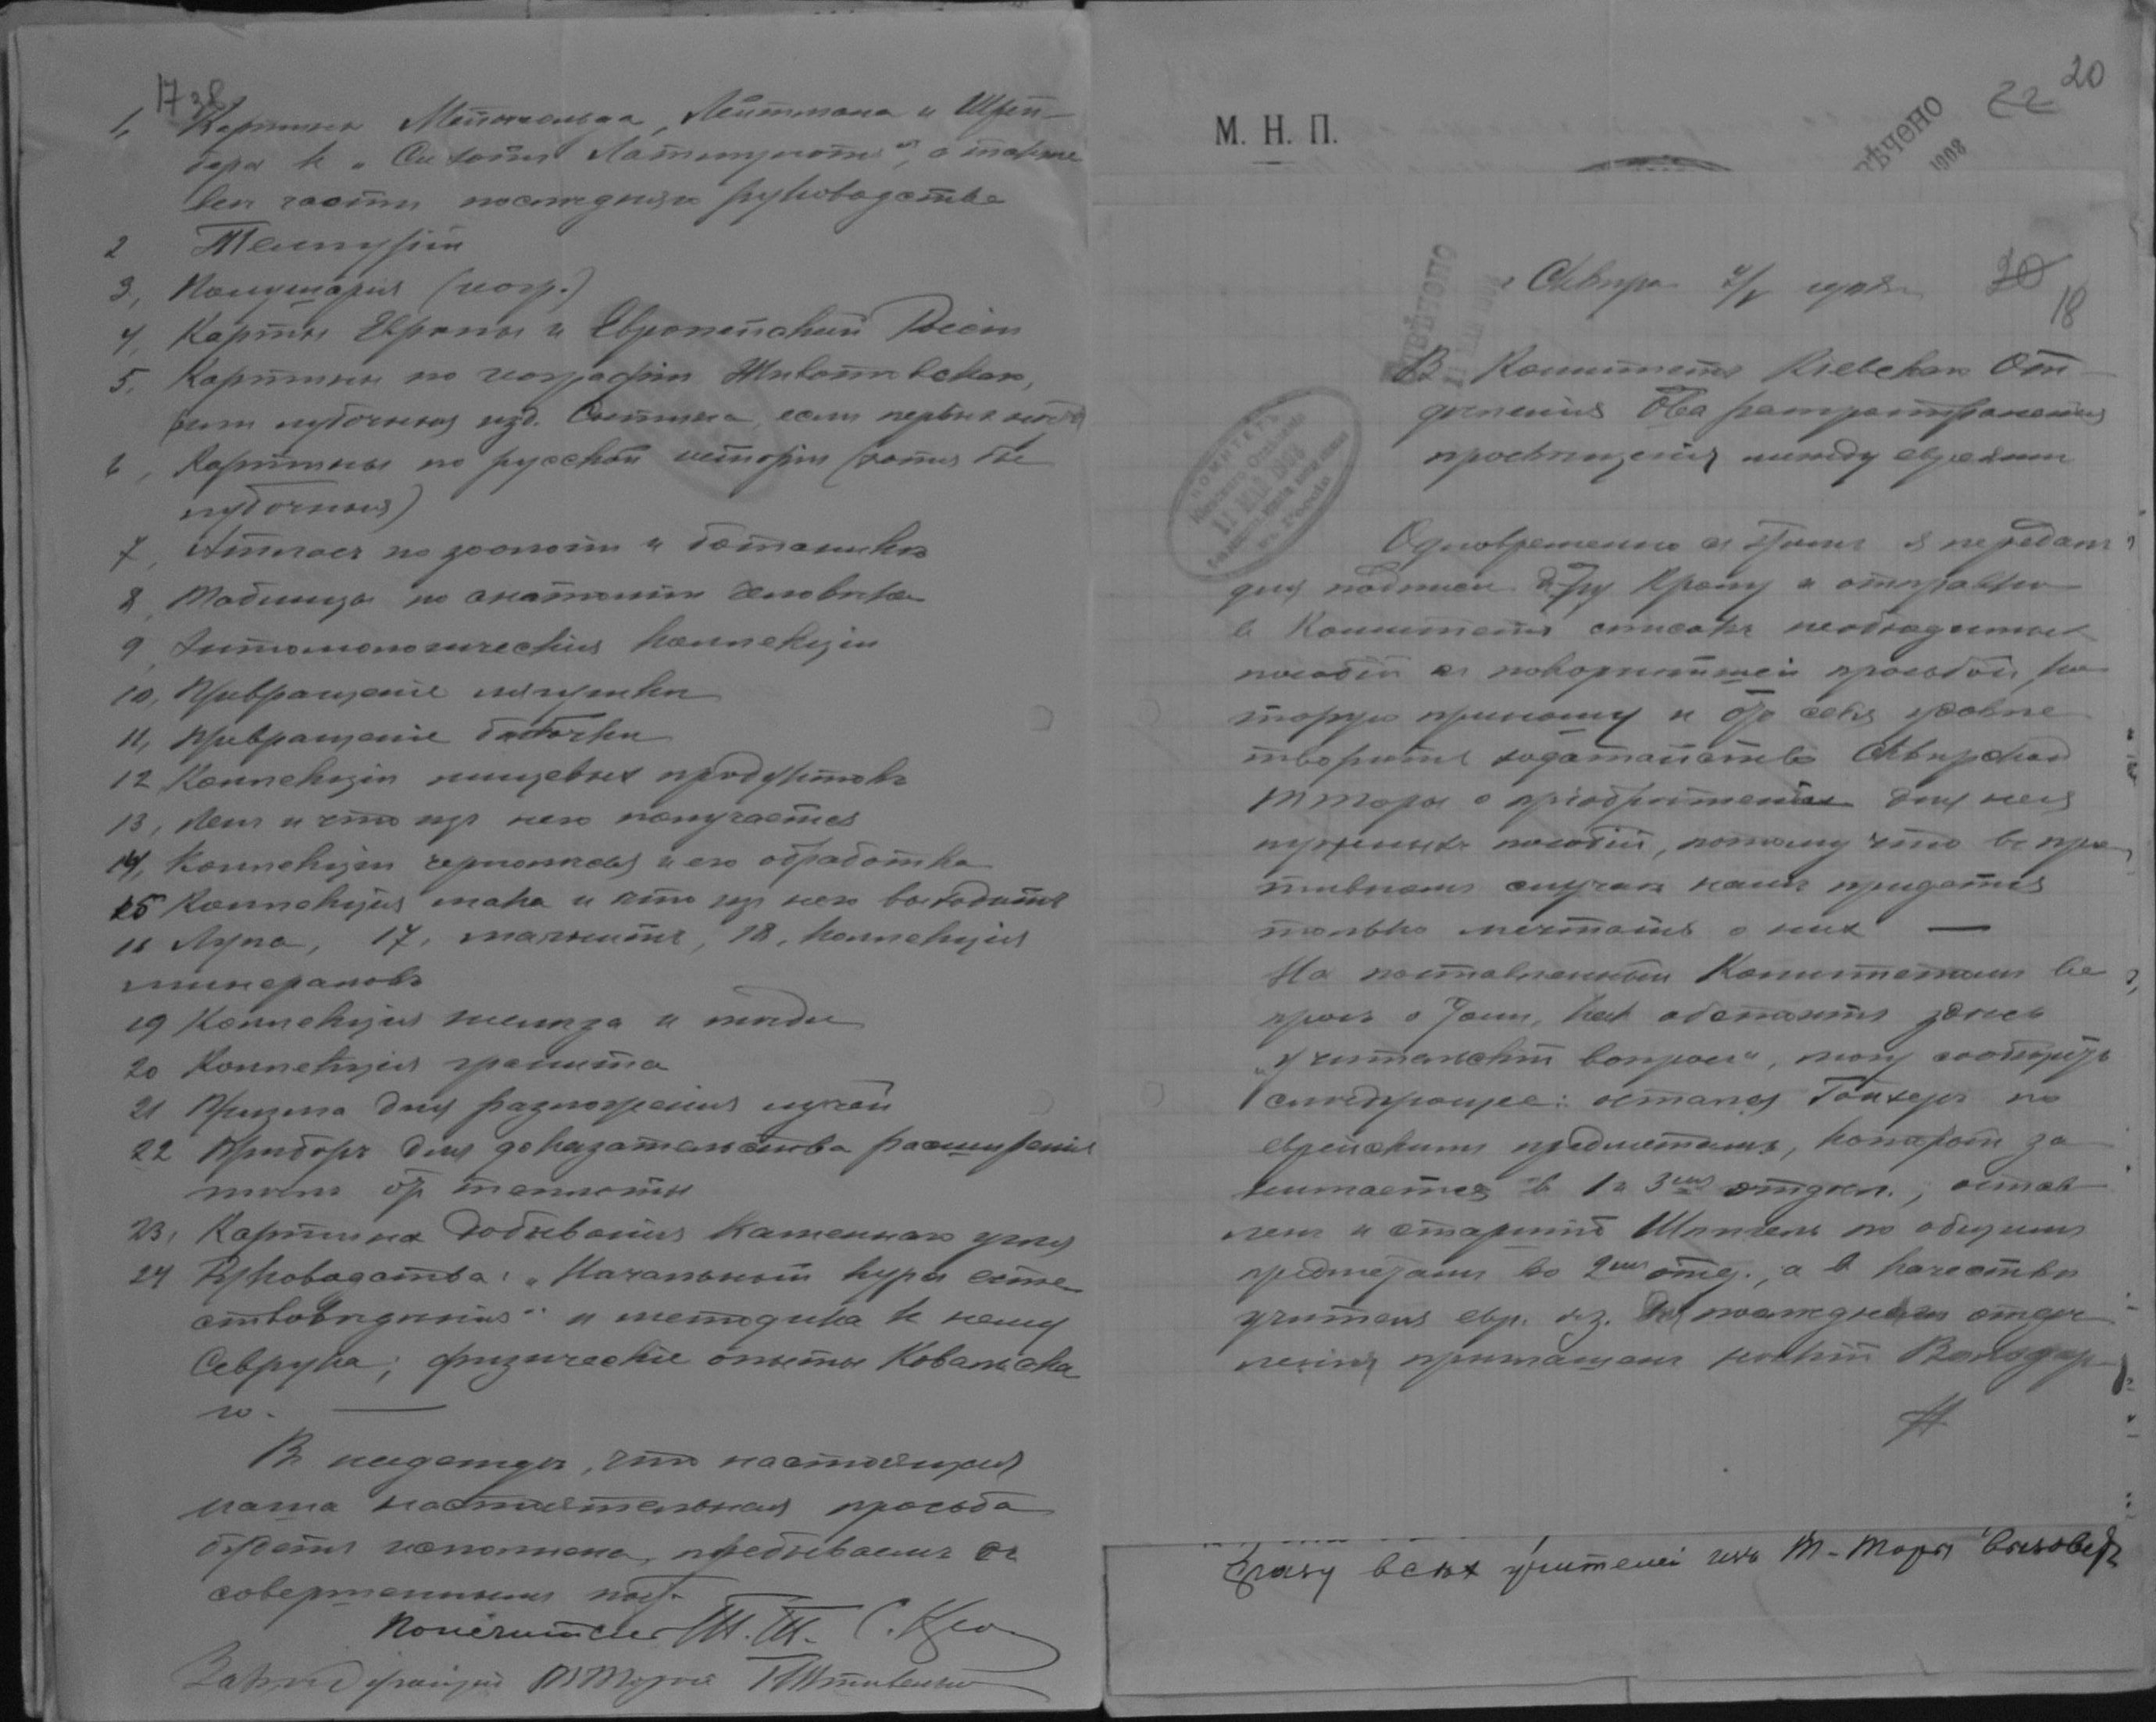 17 38
1, Картины Мейнгольда, Лейтмана и Шрей-
дера к „ , а также
все части последняго руководства
2 Теллурій
3, Полушарія (геогр.)
4, Карты Европы и Европейской Россіи
5, Картины по географіи
или лубочныя изд. Сытина, если первых
6, Картины по русской исторіи (хотя бы
лубочныя)
7, Атлас по зоологіи и ботаникѣ
8, Таблицы по анатоміи человѣка
9, Энтомологическія коллекціи
10, Превращеніе лягушки
11, Превращеніе бабочки
12 Коллекціи пищевых продуктовъ
13, Лен и что из него получается
14, Коллекціи и его обработка
15 Коллекція и что из него
16 Лупа, 17, магнитъ, 18, коллекція
минераловъ
19 Коллекція желѣза и мѣди
20 Коллекція гранита
21 Призма для разложенія лучей
22 Прибор для доказательства расширенія
тѣлъ от теплоты
23, Картина добыванія каменнаго угля
24 Руководства: „Начальный курс есте-
ствовѣдѣнія" и методика к нему
Севрука; физическіе опыты Ковальска-
го. —
В надеждѣ, что настоящая
наша настоятельная просьба
будет исполнена, пребываем съ
совершенным
Попечитель Т.Т. С.
Завѣдующій Т Торой
20
22
М. Н. П.
1908
Сквира
20
18
В Комитетъ Кіевскаго От-
дѣленія О-ва распространенія
просвѣщенія между евреями
Одновременно съ этимъ я передам
для подписи д-ру Крому и отправлю
в Комитетъ список необходимых
пособій съ покорнѣйшей просьбой, ко-
торую приношу и от себя удовле-
творить ходатайство Сквирской
Т Торы о пріобрѣтеніи для нея
нужных пособій, потому что в про-
тивном случаѣ нам придется
только мечтать о них —
На поставленный Комитетом во-
прос о том, как обстоит здѣсь
„учительскій вопрос", могу сообщить
слѣдующее: остался по
еврейским предметам, который за-
нимается в 1 и 3им отдѣл.; остав-
лен и старый по общим
предметам во 2ом отд., а в качествѣ
учителя евр. яз. послѣднем отдѣ-
леніи приглашен нѣкій
Сразу всѣх учителей изъ Т-Торы